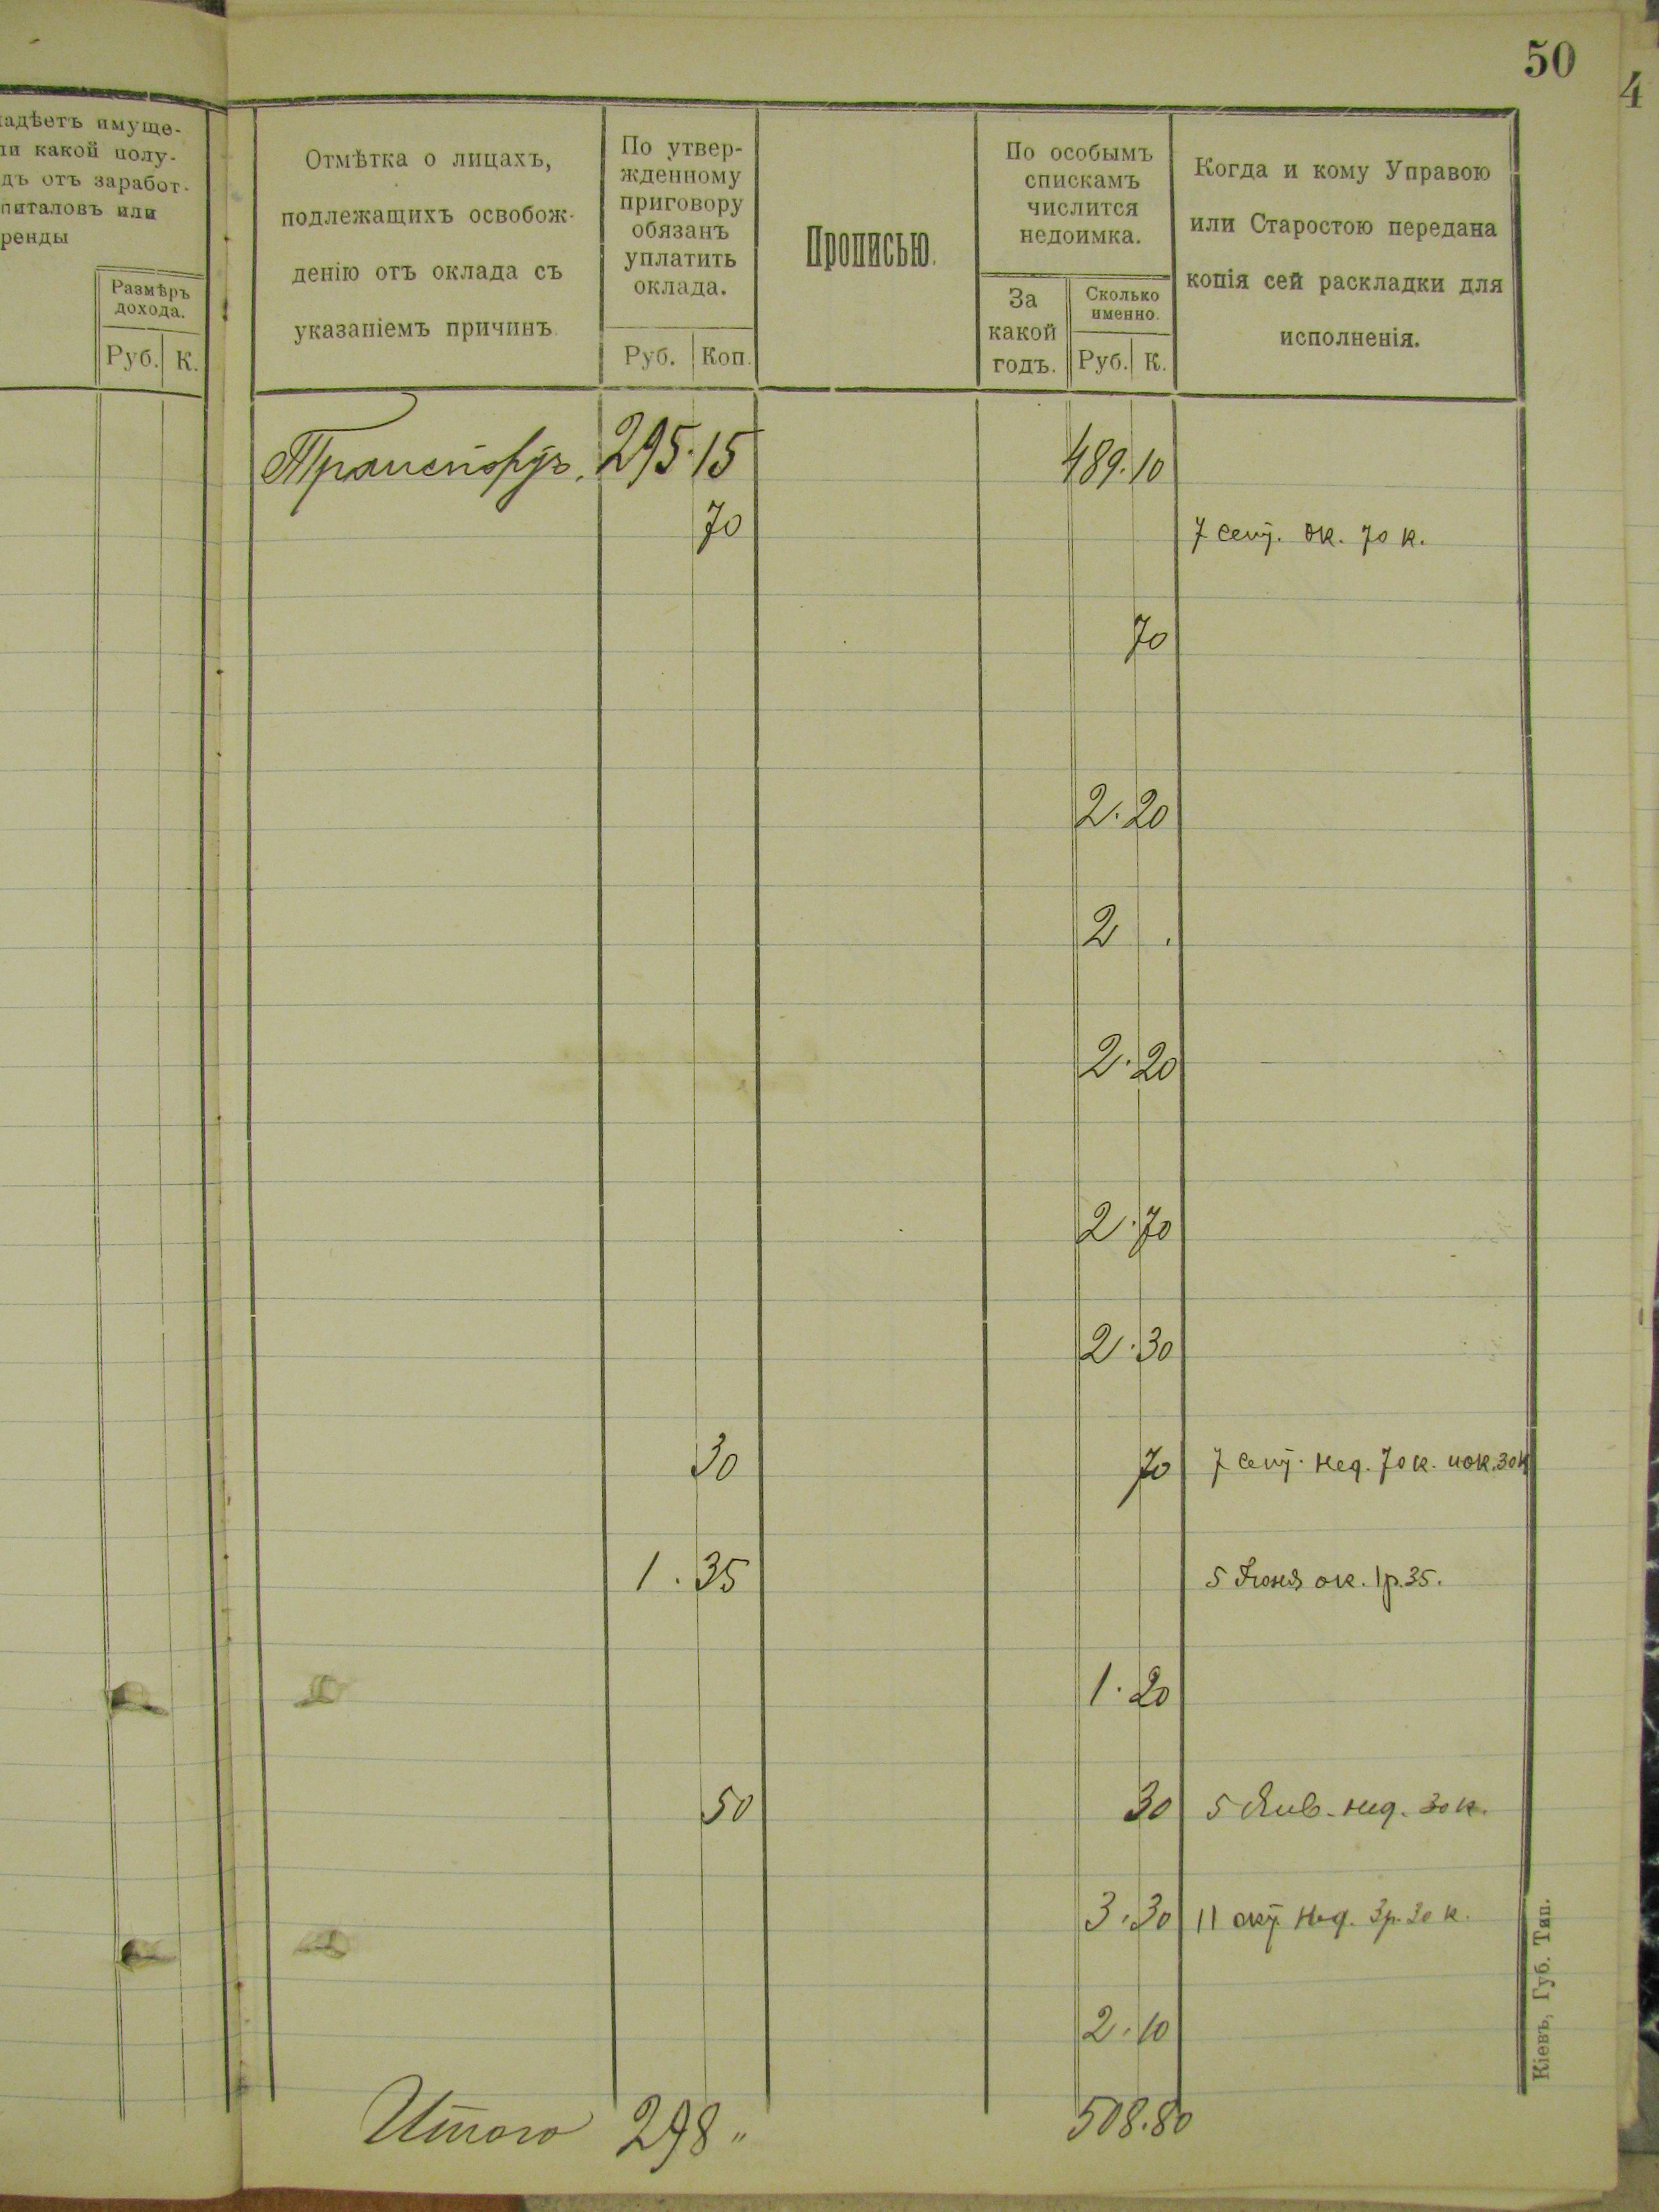 50
4
ладѣетъ имуще-
ли какой полу-
дъ отъ заработ-
питаловъ или
ренды
Размѣръ
дохода.
Руб. К.
Отмѣтка о лицахъ,
подлежащихъ освобож-
денію отъ оклада съ
указаніемъ причинъ
По утвер-
жденному
приговору
обязанъ
уплатить
оклада.
Руб. Коп.
Прописью.
По особымъ
спискамъ
числится
недоимка.
За
какой
годъ.
Сколько
именно.
Руб. К.
Когда и кому Управою
или Старостою передана
копія сей раскладки для
исполненія.
Транспортъ. 295.15 489.10
70 7 сент. ок. 70 к.
70
2.20
2 .
2.20
2.70
2.30
30 70 7 сент. нед. 70 к. и ок. 30 к
1.35 5 Июня ок. 1 р. 35.
1.20
50 30 5 Янв. нед. 30 к.
3.30 11 окт. нед. 3 р. 30 к.
2.10
Итого 298 " 508.80
Кіевъ, Губ. Тип.